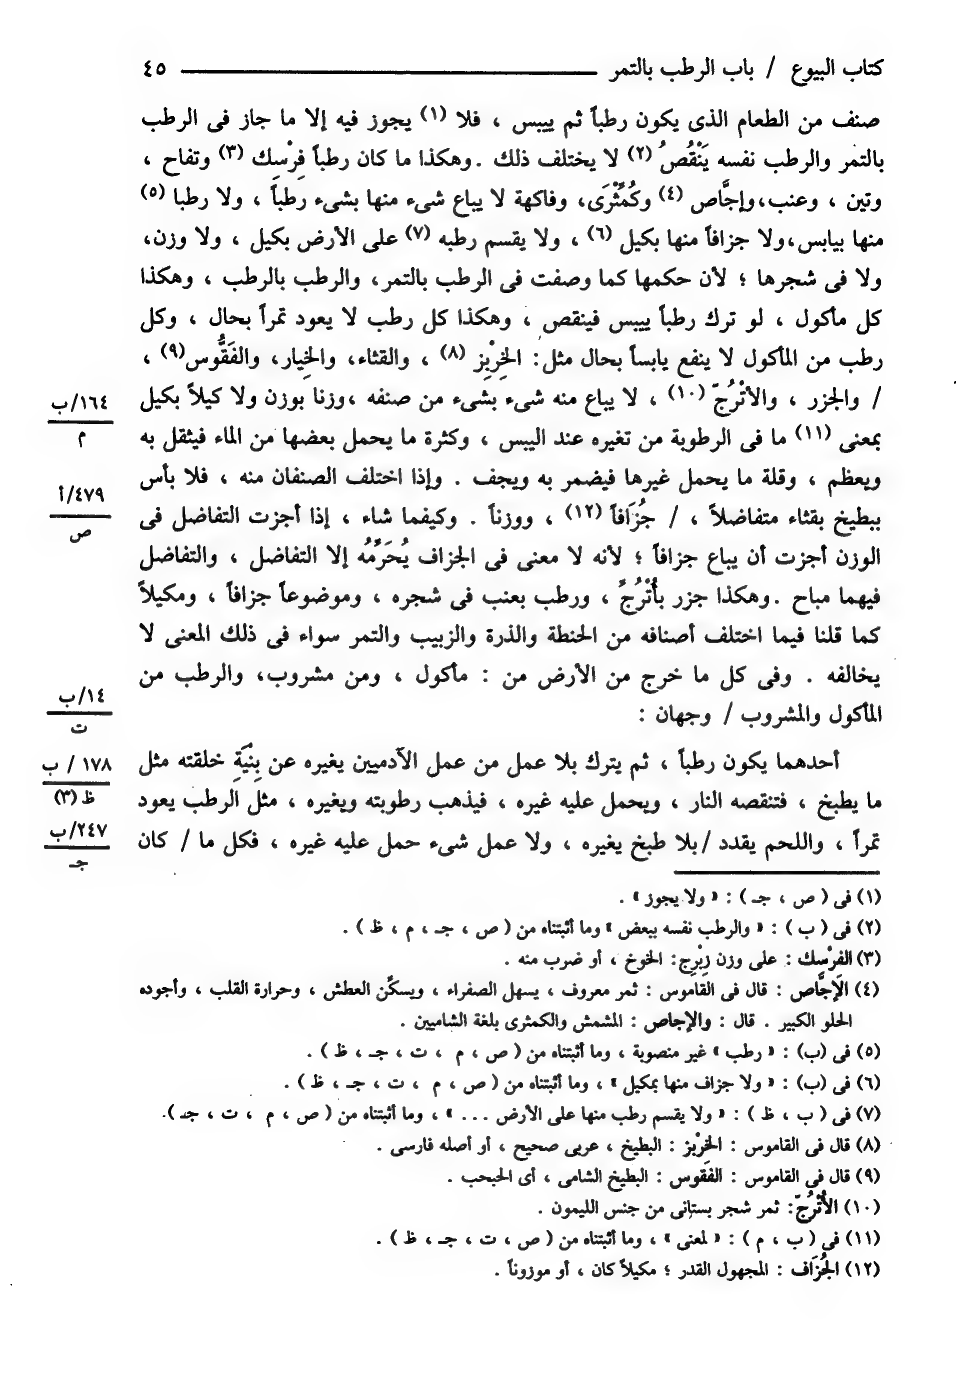 كتاب البيوع / باب الرطب بالتمر ـــــــــ ٤٥
صنف من الطعام الذى يكون رطباً ثم ييبس ، فلا (١) يجوز فيه إلا ما جاز فى الرطب
بالتمر والرطب نفسه يَنْقُصُ (٢) لا يختلف ذلك .وهكذا ما كان رطباً فِرْسِك (٣) وتفاح ،
وتين ، وعنب،وإجَّاص (٤) وكُمَّثْرَى، وفاكهة لا يباع شىء منها بشىء رطباً ، ولا رطبا (٥)
منها بيابس،ولا جزافاً منها بكيل (٦) ، ولا يقسم رطبه (٧) على الأرض بكيل ، ولا وزن،
ولا فى شجرها ؛ لأن حكمها كما وصفت فى الرطب بالتمر، والرطب بالرطب ، وهكذا
كل مأكول ، لو ترك رطباً ييبس فينقص ، وهكذا كل رطب لا يعود تمراً بحال ، وكل
رطب من المأكول لا ينفع يابساً بحال مثل: الخِرْبِز (٨) ، والقثاء، والخِيار، والفَقُّوس(٩) ،
/ والجزر ، والأتْرُجّ (١٠) ، لا يباع منه شىء بشىء من صنفه ،وزنا بوزن ولا كيلاً بكيل
بمعنى (١١) ما فى الرطوبة من تغيره عند اليبس ، وكثرة ما يحمل بعضها من الماء فيثقل به
ويعظم ، وقلة ما يحمل غيرها فيضمر به ويجف . وإذا اختلف الصنفان منه ، فلا بأس
ببطيخ بقثاء متفاضلاً ، / جُزَافاً (١٢) ، ووزناً . وكيفما شاء ، إذا أجزت التفاضل فى
الوزن أجزت أن يباع جزافاً ؛ لأنه لا معنى فى الجزاف يُحَرِّمُه إلا التفاضل ، والتفاضل
فيهما مباح .وهكذا جزر بأُتْرُجٍّ ، ورطب بعنب فى شجره ، وموضوعاً جزافاً ، ومكيلاً
كما قلنا فيما اختلف أصنافه من الحنطة والذرة والزبيب والتمر سواء فى ذلك المعنى لا
يخالفه . وفى كل ما خرج من الأرض من : مأكول ، ومن مشروب، والرطب من
المأكول والمشروب / وجهان :
أحدهما يكون رطباً ، ثم يترك بلا عمل من عمل الآدميين يغيره عن بِنْيَةِ خلقته مثل
ما يطبخ ، فتنقصه النار ، ويحمل عليه غيره ، فيذهب رطوبته ويغيره ، مثل الرطب يعود
تمراً ، واللحم يقدد /بلا طبخ يغيره ، ولا عمل شىء حمل عليه غيره ، فكل ما / كان
١٦٤/ب
م
٤٧٩/أ
ص
١٤/ب
ت
١٧٨ / ب
ظ (٣)
٢٤٧/ب
جـ
(١) فى ( ص ، جـ ) : « ولا يجوز » .
(٢) فى ( ب ) : « والرطب نفسه ببعض » وما أثبتناه من ( ص ، جـ ، م ، ظ ) .
(٣) الفرْسك : على وزن زِبْرِج: الخوخ ، أو ضرب منه .
(٤) الإجَّاص : قال فى القاموس : ثمر معروف ، يسهل الصفراء ، ويسكِّن العطش ، وحرارة القلب ، وأجوده
الحلو الكبير . قال : والإجاص : المشمش والكمثرى بلغة الشاميين .
(٥) فى (ب) : « رطب » غير منصوبة ، وما أثبتناه من ( ص ، م ، ت ، جـ ، ظ ) .
(٦) فى (ب) : « ولا جزاف منها بمكيل » ، وما أثبتناه من ( ص ، م ، ت ، جـ ، ظ ) .
(٧) فى ( ب ، ظ ) : « ولا يقسم رطب منها على الأرض ... » ، وما أثبتناه من ( ص ، م ، ت ، جـ ).
(٨) قال فى القاموس : الخِرْبز : البطيخ ، عربى صحيح ، أو أصله فارسى .
(٩) قال فى القاموس : الفقوس : البطيخ الشامى ، أى الحبحب .
(١٠) الأُتْرُجّ: ثمر شجر بستانى من جنس الليمون .
(١١) فى ( ب ، م ) : « لمعنى » ، وما أثبتناه من ( ص ، ت ، جـ ، ظ ) .
(١٢) الجُزَاف : المجهول القدر ؛ مكيلاً كان ، أو موزوناً .